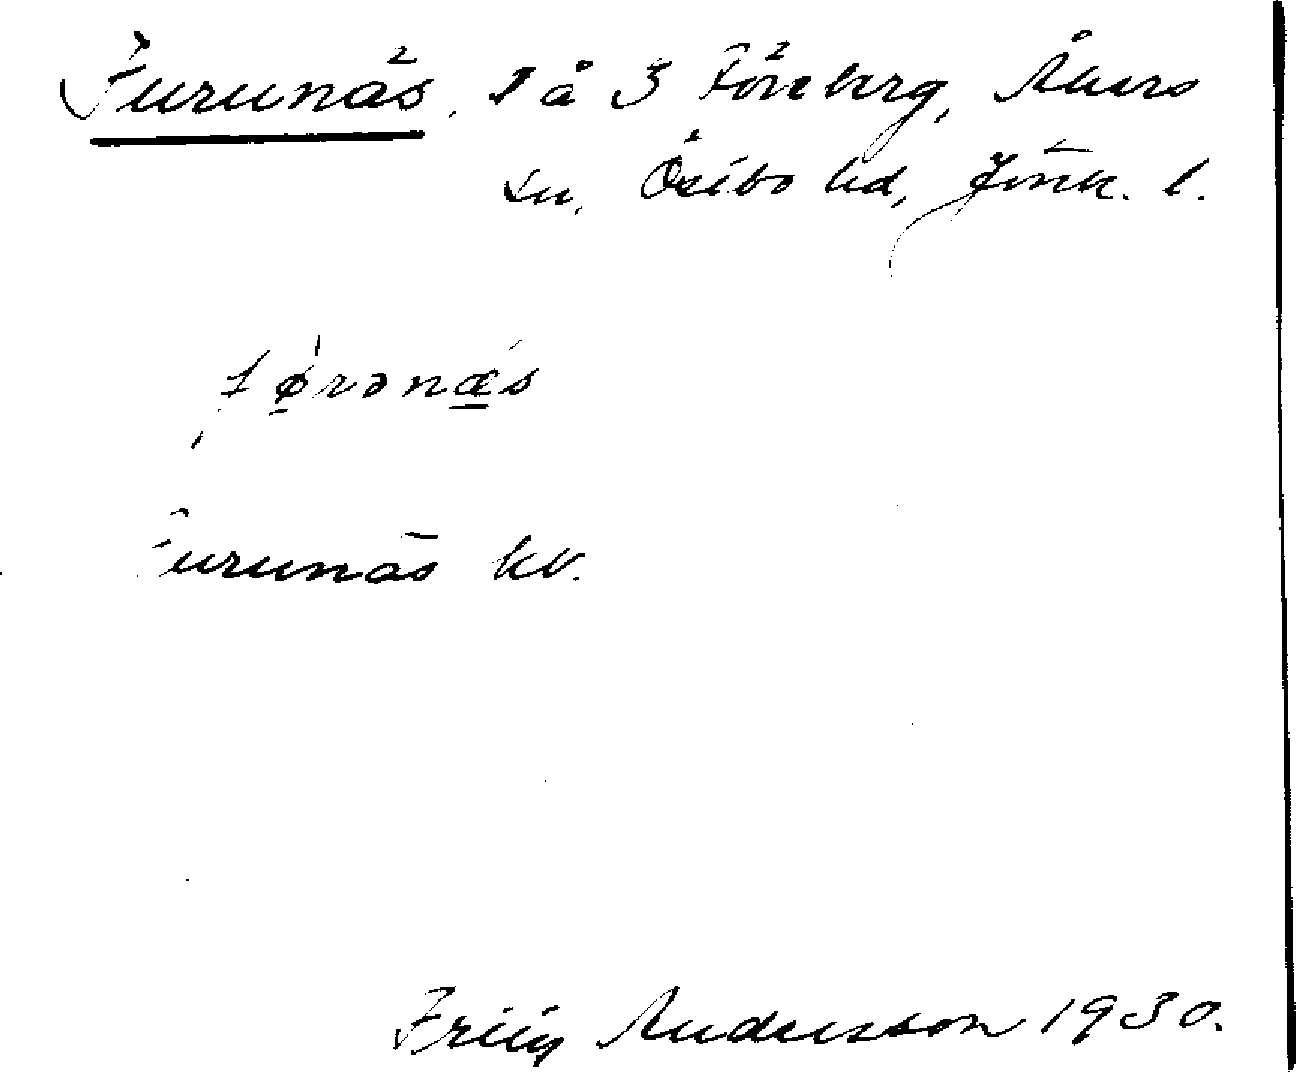 Furunäs, I å 3 Föreberg, Åkers
sn, Östbo hd, Jönk. l.
førənæs
Furunäs kv.
Friiq Andersson 1930.